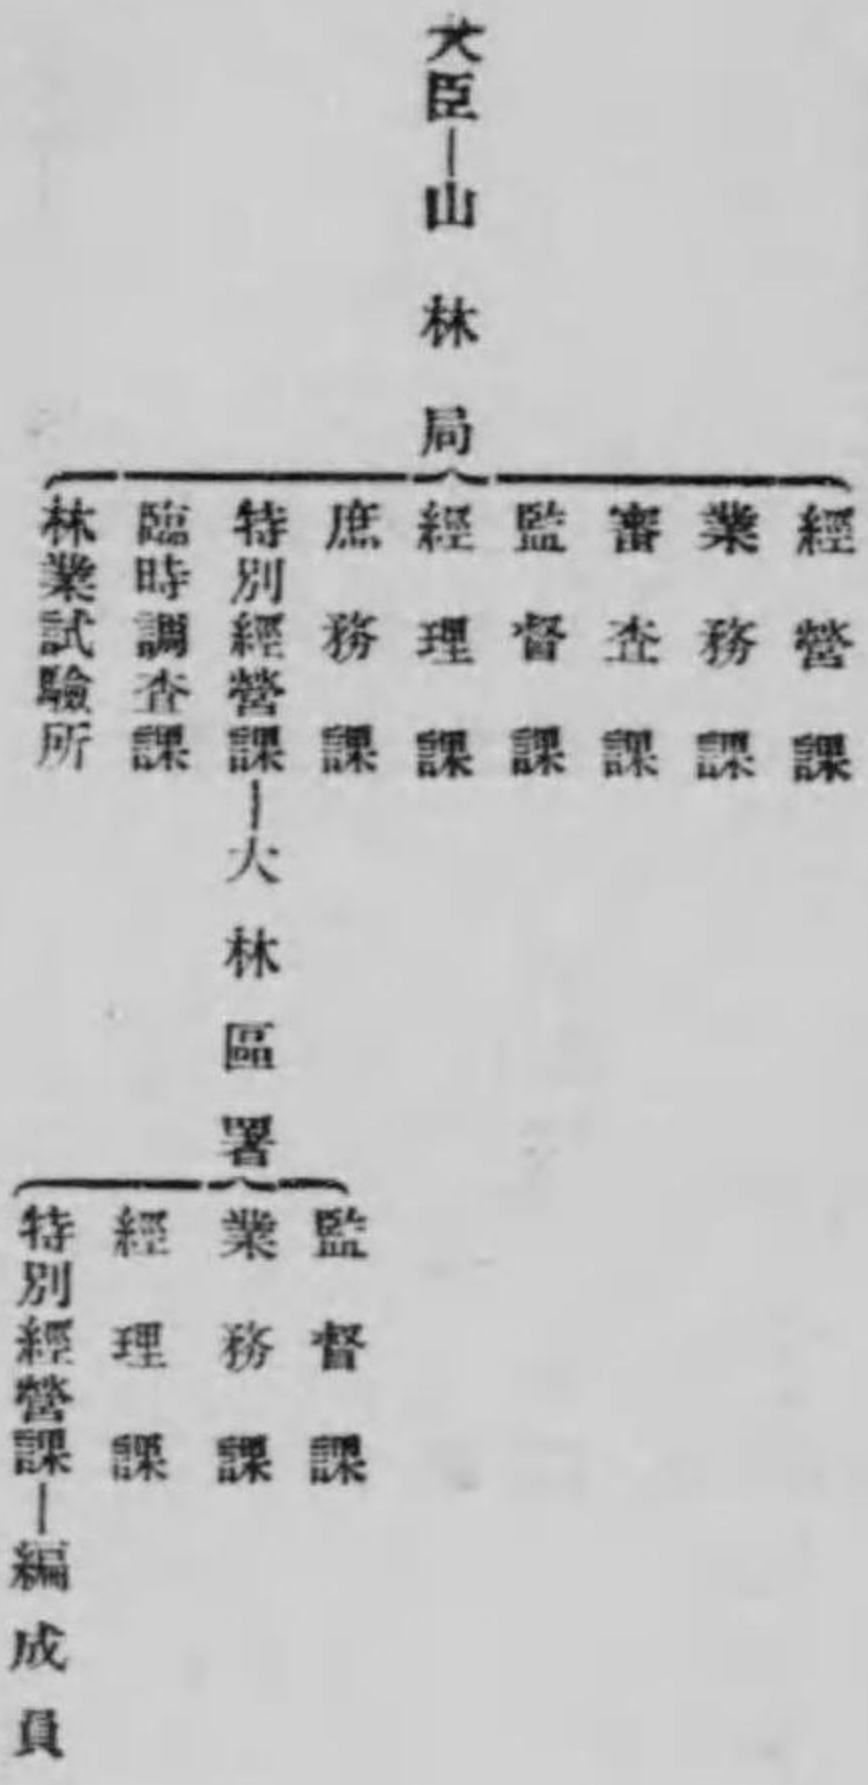 大臣―山林局
經營課
業務課
審査課
監督課
經理課
庶務課
特別經營課―大林區署
臨時調査課
林業試驗所
監督課
業務課
經理課
特別經營課―編成員